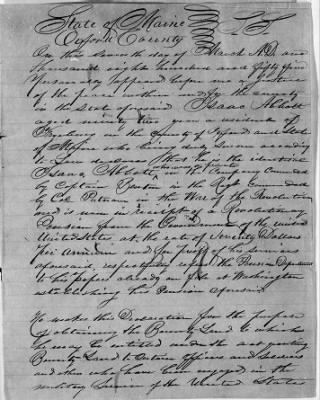 State of Maine
Oxford County } SS
On this seventh day of March A.D. one
thousand eight hundred and fifty five
personally appeared before me a Justice
of the peace within and for the county
in the State aforesaid Isaac Abbott
aged ninety two years a resident of
Fryeburg in the County of Oxford and State
of Maine who being duly sworn according
to Law declares that he is the identical
Isaac Abbott who was a private in the Company Commanded
by Captain in the Regt Commanded
by Col Putnam in the War of the Revolution
and is now in receipt of a Revolutionary
Pension from the Government of the United
United States, at the rate of Seventy Dollars
per annum and for proof of his services
aforesaid, respectfully refers the Pension Department
to his papers already on file at Washington
establishing his Pension aforesaid
He makes this Declaration for the purpose
of obtaining the Bounty Land to which
he may be entitled under the act granting
Bounty Land to Certain Officers and Soldiers
and others who have been engaged in the
military Service of the United States